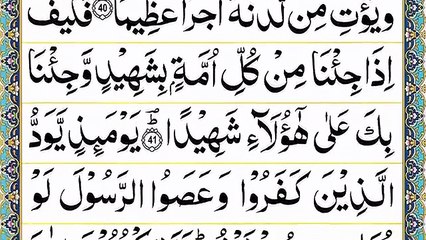 وَيُؤْتِ مِنْ لَّدُنْهُ اَجْرًا عَظِيْمًا ﴿40﴾ فَكَيْفَ
اِذَا جِئْنَا مِنْ كُلِّ اُمَّةٍۭ بِشَهِيْدٍ وَّجِئْنَا
بِكَ عَلٰى هٰۤؤُلَآءِ شَهِيْدًا ﴿41﴾ؕ يَوْمَئِذٍ يَّوَدُّ
الَّذِيْنَ كَفَرُوْا وَعَصَوُا الرَّسُوْلَ لَوْ